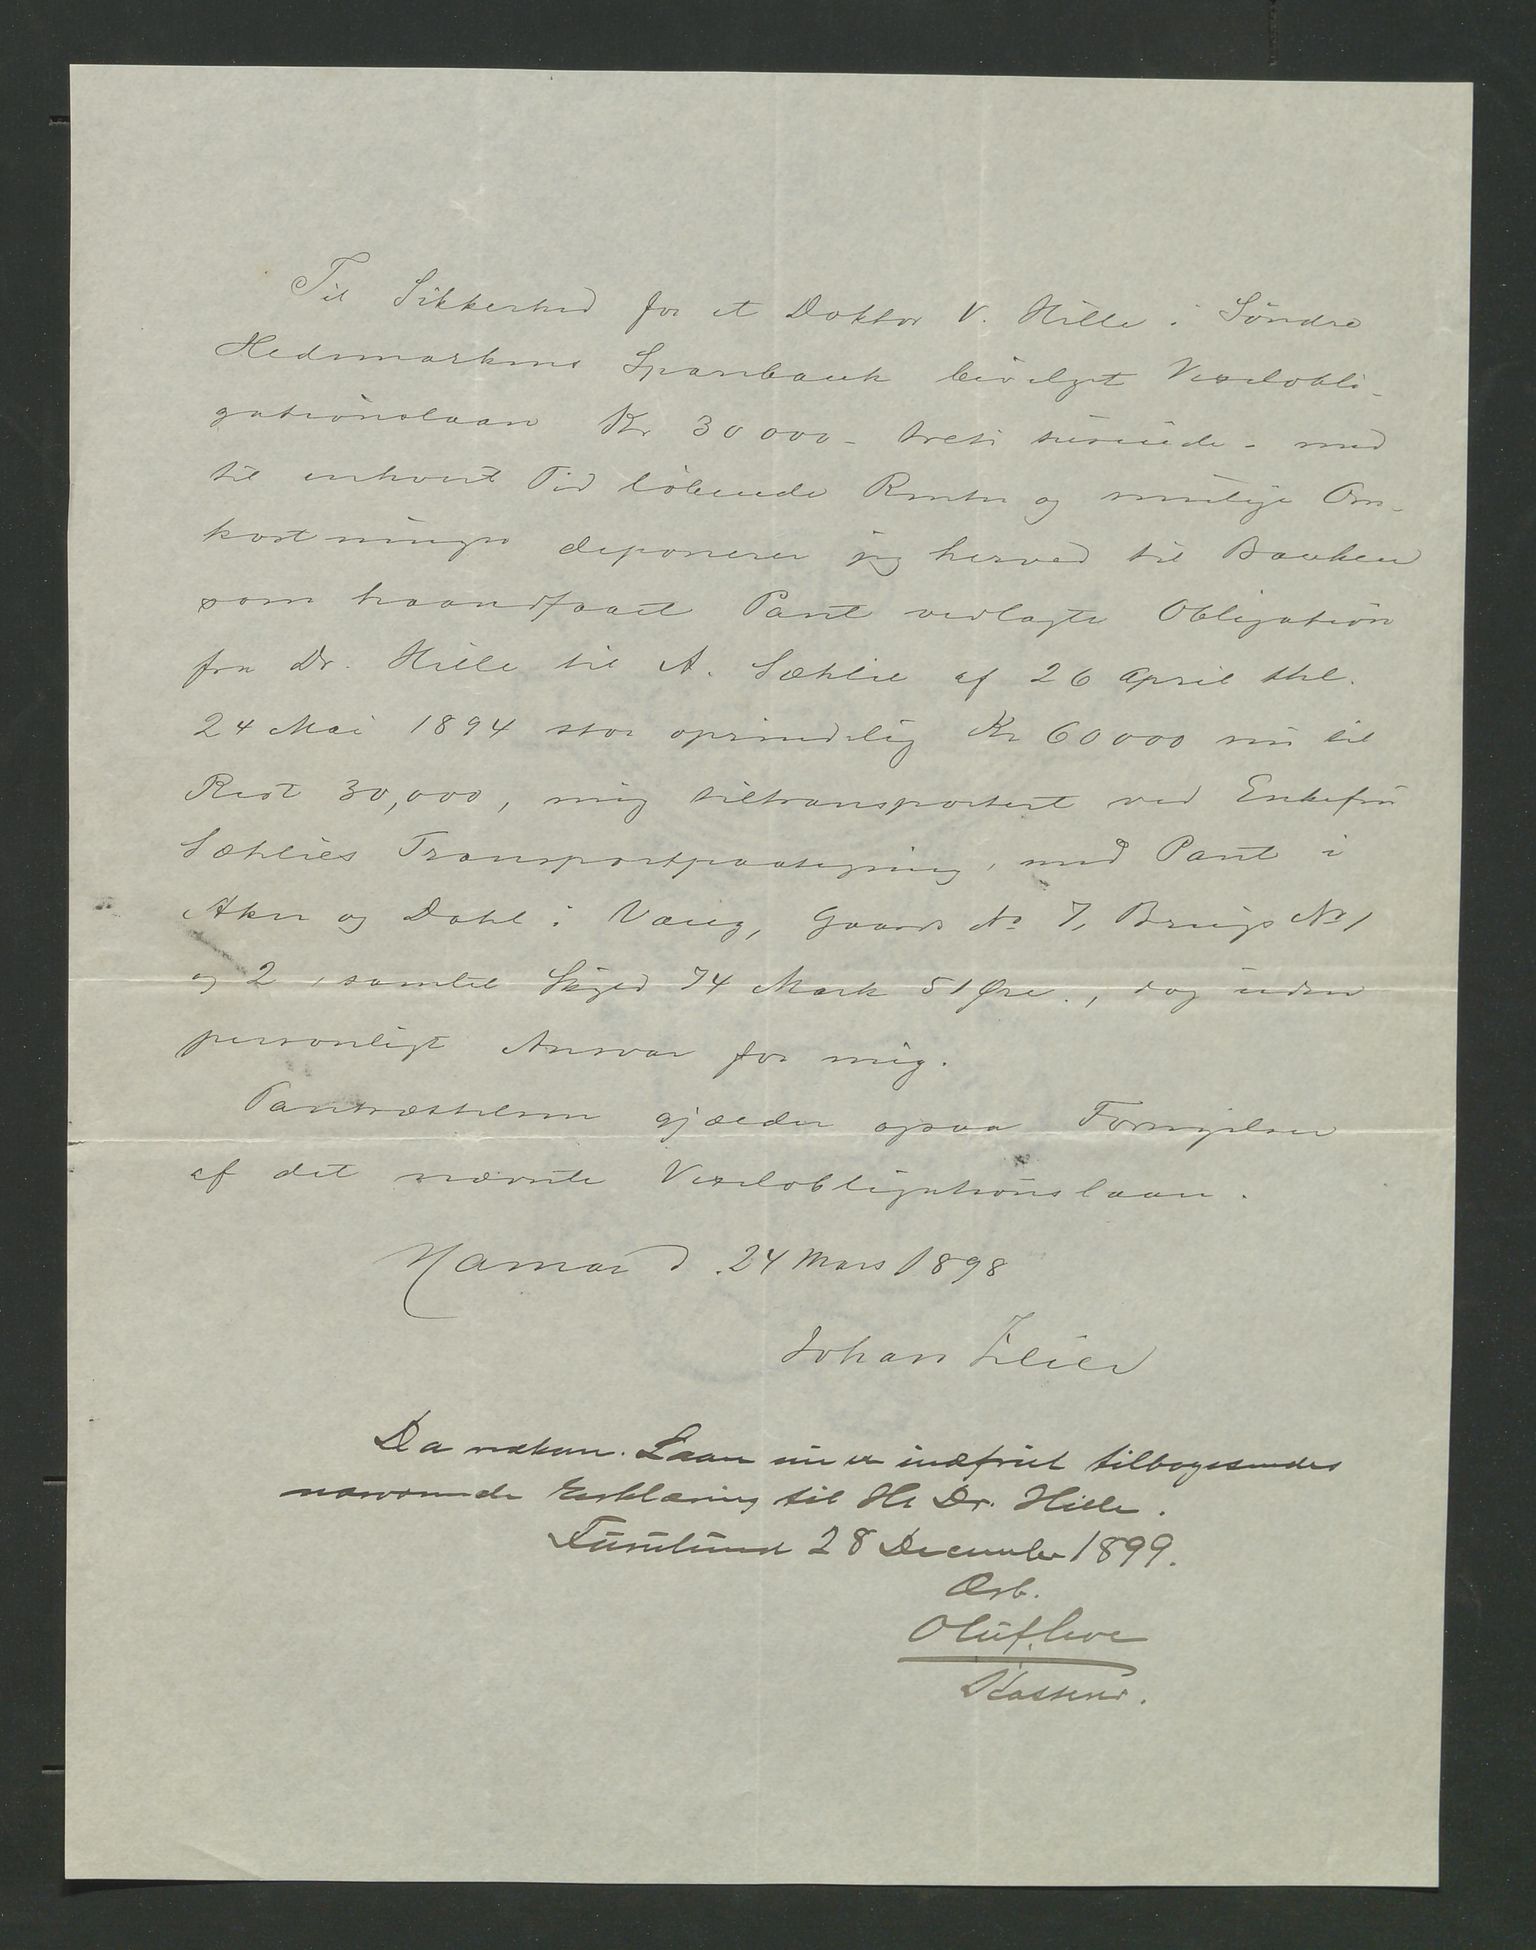 Til Sikkerhed for et Doktor V. Hille i Søndre
Hedemarkens Sparebank bevilget Vexelobli-
gationslaan Kr 30 000 - treti tusinde - med
til enhver Tid løbende Renter og mulige Om-
kostninger deponerer jeg herved til Banken
som haandfaaet Pant vedlagte Obligation
fra Dr. Hille til A. Sæhlie af 26 April thl.
24 Mai 1894 stor oprindelig Kr 60 000 nu til
Rest 30,000, mig tiltransportert ved Enkefru
Sæhlies Transportpaategning, med Pant i
Aker og Dahl i Vang, Gaards No 7, Brugs No 1
og 2, samlet Skyld 74 Mark 51 Øre., dog uden
personligt Ansvar for mig.
Pantsættelsen gjælder ogsaa Fornyelser
af det nævnte Vexelobligationslaan.
Hamar d. 24 Mars 1898
Johan
Da Laan nu er indfriet tilbagesendes
nærværende Erklæring til Hr Dr. Hille.
28 December 1899.
Ærb.
Oluf
Kasserer.